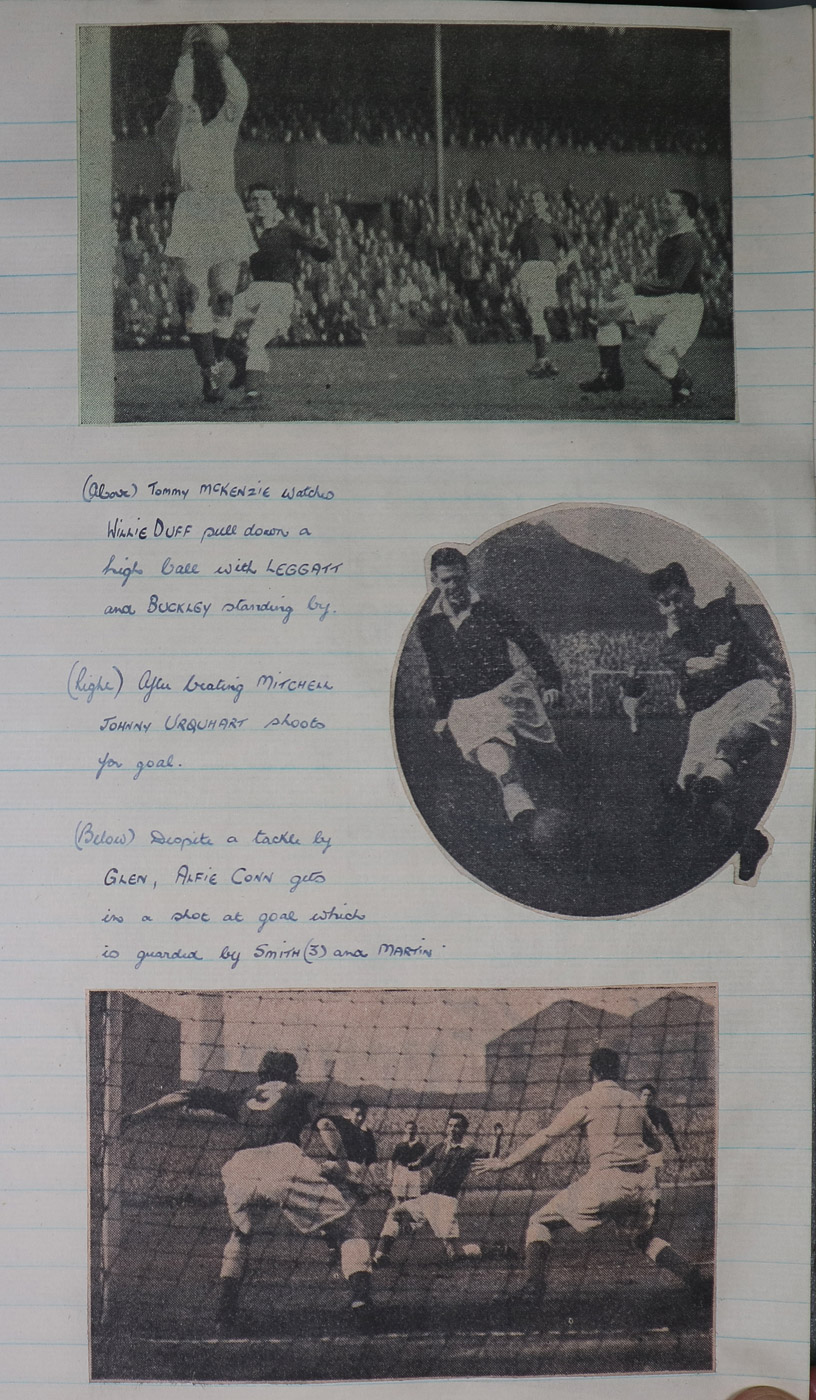 (Above) Tommy McKENZIE watches
WILLIE DUFF pull down a
high ball with LEGGATT
and BUCKLEY standing by.
(Right) After beating MITCHELL
JOHNNY URQUHART shoots
for goal.
(Below) Despite a tackle by
GLEN, ALFIE CONN gets
in a shot at goal which
is guarded by SMITH (3) and MARTIN.
3